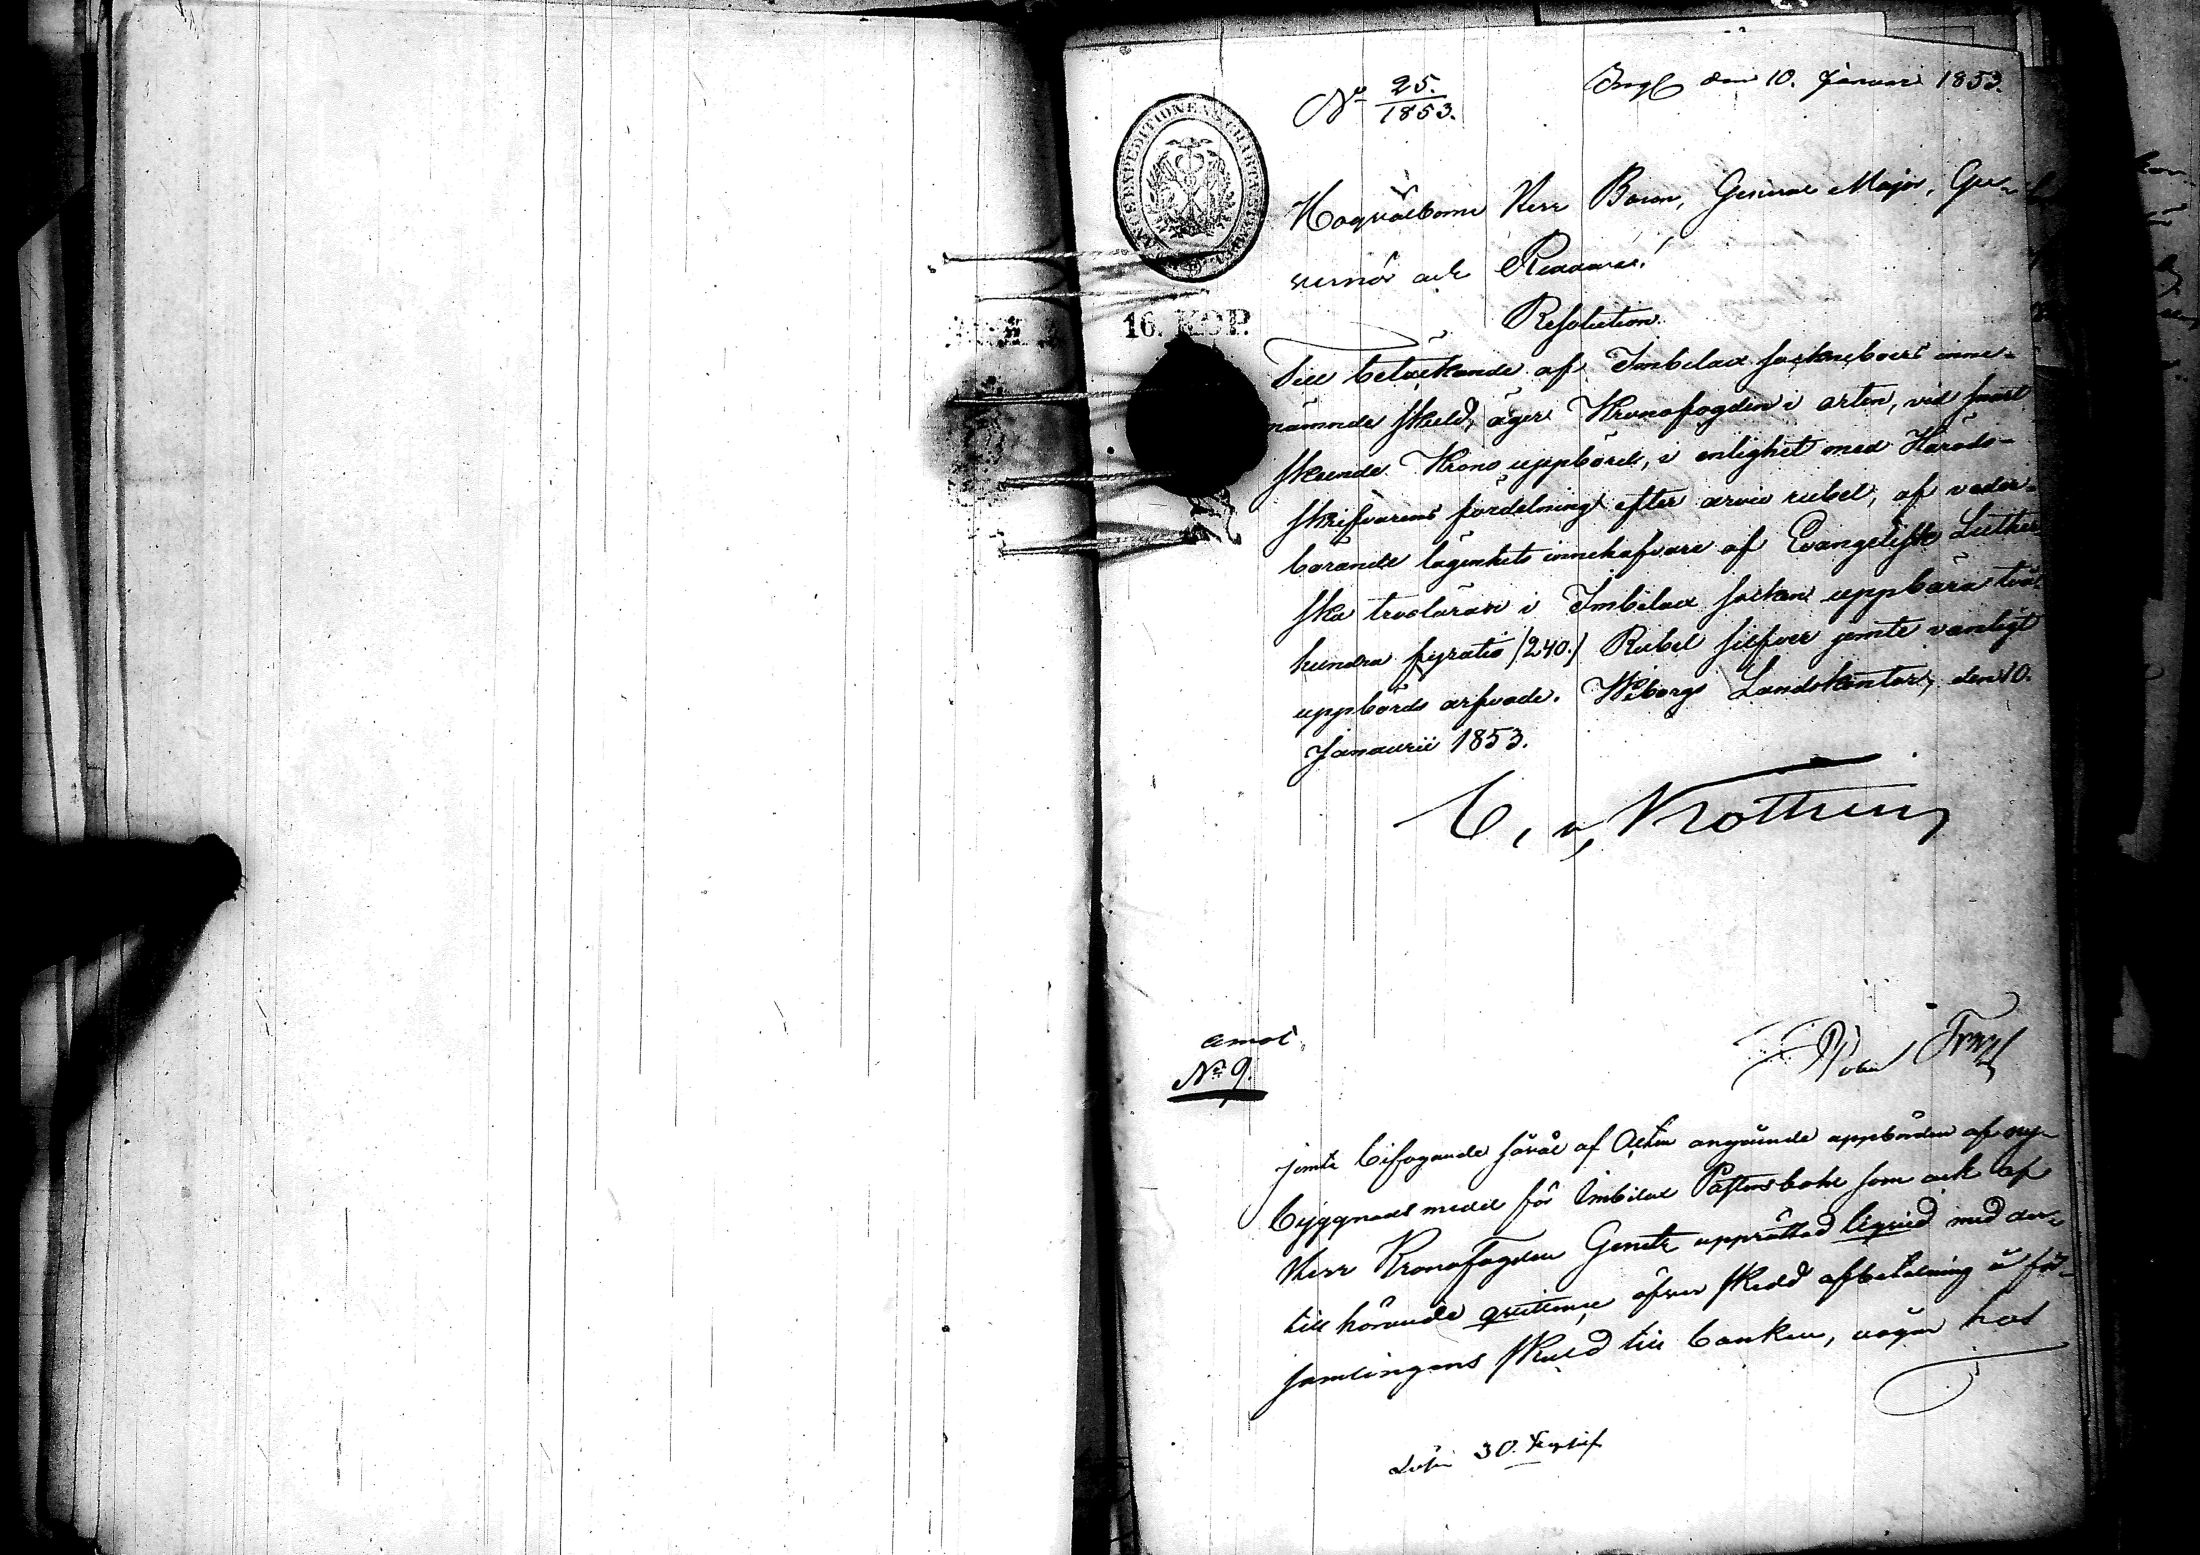 No 25.
1853.
Ingl den 10. Januari 1853.
Högvälborne Herr Baron, General Major, Gu-
vernör och Riddare!
16. KOP.
Resolution.
Till betäckande af Imbilax sockneboers inne-
nämnde skuld, äger Kronofogden i orten, vid snart
skeende Krono uppbörd, i enlighet med Härads-
skrifvarens fördelning efter arvio rubel, af veder-
börande lägenhets innehafvare af Evangelisk Luther
ska trosläran i Imbilax socken uppbära två
hundra fyratio /240./ Rubel silfver jemte vanligt
uppbörds arfvode. Wiborgs Landskontor, den 10.
Januarii 1853.
C. v. Kothen
No 9.
jemte bifogande såväl af Acten angående uppbörden af ny-
byggnads medel för Imbilax Pastorsbohl som ock af
Herr Kronofogden Genetz upprättad liqvid med der-
till hörande quittence öfver skedd afbetalning å för-
samlingens skuld till banken, vågar hos
Lösen 30. kop. silf